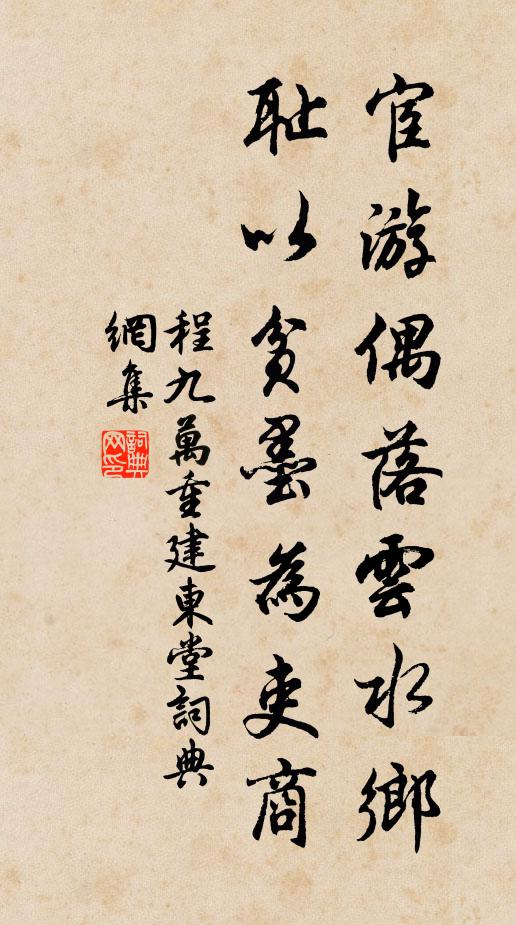 宦游偶落雲水鄉
耻以貪墨為吏商
程九萬重建東堂詞典
網集
詞典網印